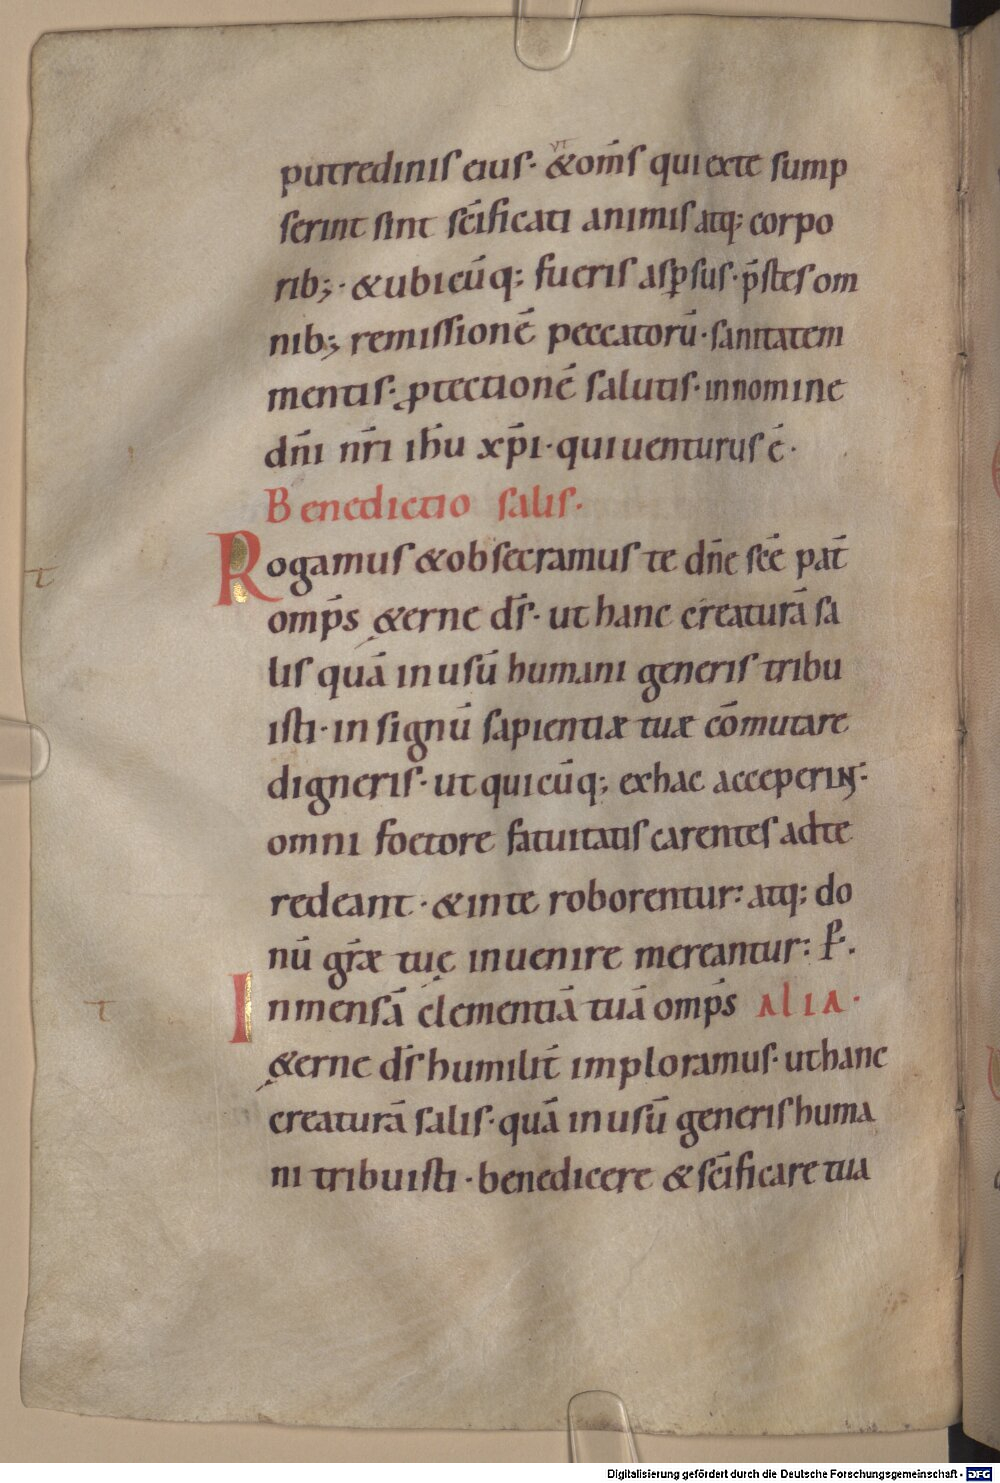 putredinis eius· &om̄s qui exte sump
ut
serint sint sc̄ificati animis atq; corpo
rib;· & ubicūq; fueris asꝑsus· p̄stes om
nib; remissionē peccatorū· sanitatem
mentis· ꝓtectionē salutis· in nomine
dn̄i nr̄i ih̄u xp̄i· qui uenturus ē·
Benedictio salis·
Rogamus & obsecramus te dn̄e sc̄e pat̄
t
omp̄s &erne ds̄· ut hanc creaturā sa
lis quā in usū humani generis tribu
isti· in signū sapientiæ tuæ cōmutare
digneris· ut quicūq; ex hac acceperint·
omni foetore fatuitatis carentes ad te
redeant· & in te roborentur: atq; do
nū gr̄æ tuę inuenire mereantur: P̄·
Inmensā clementiā tuā omp̄s ALIA·
t
&erne ds̄ humilit̄ imploramus· ut hanc
creaturā salis· quā in usū generis huma
ni tribuisti· benedicere & sc̄ificare tua
Digitalisierung gefördert durch die Deutsche Forschungsgemeinschaft - DFG